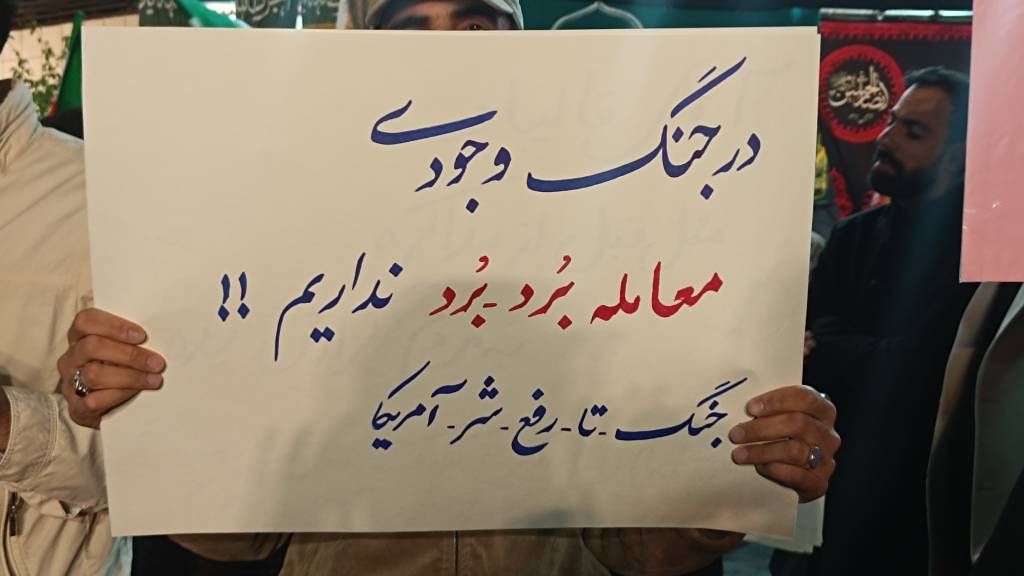 در جنگ وجودی
معامله بُرد-بُرد نداریم !!
جنگ-تا-رفع-شر-آمریکا